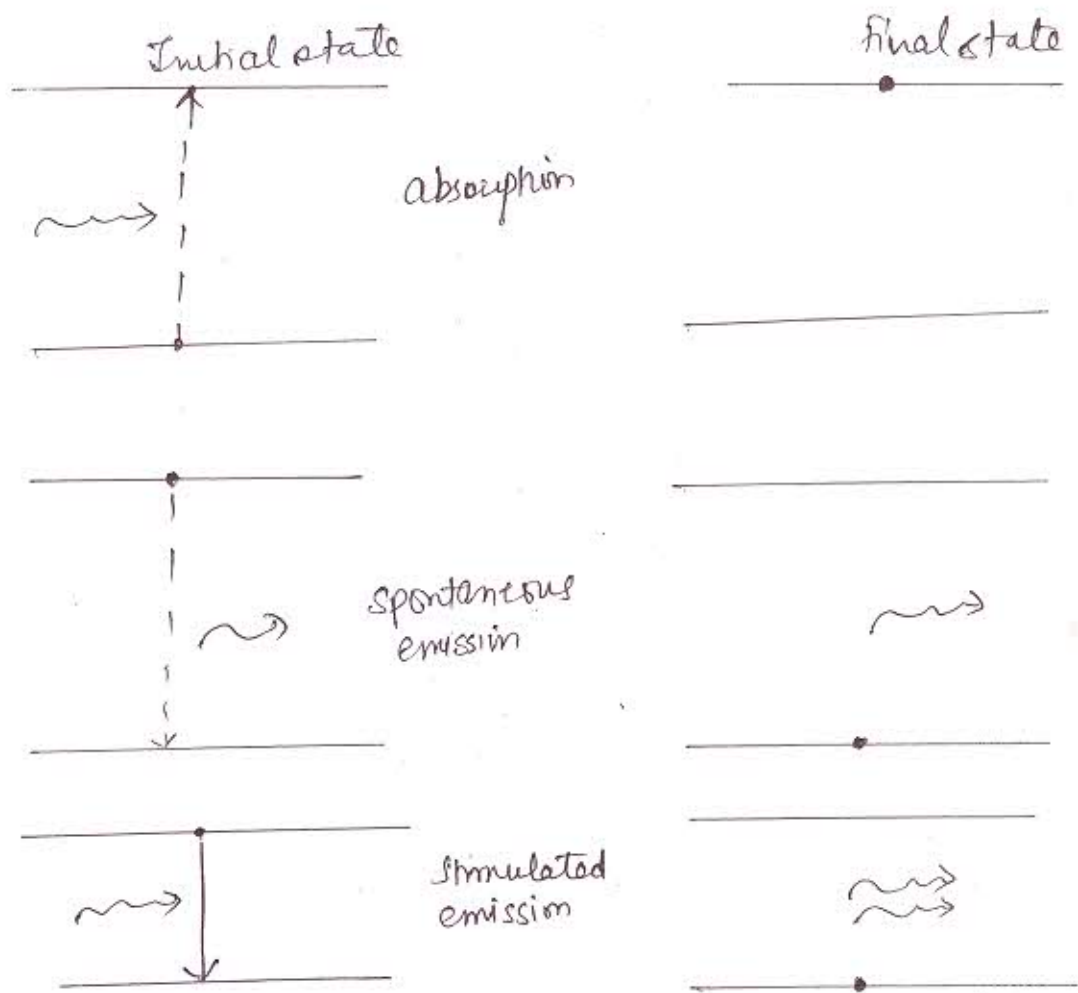 Initial state
Final state
absorption
spontaneous
emission
stimulated
emission